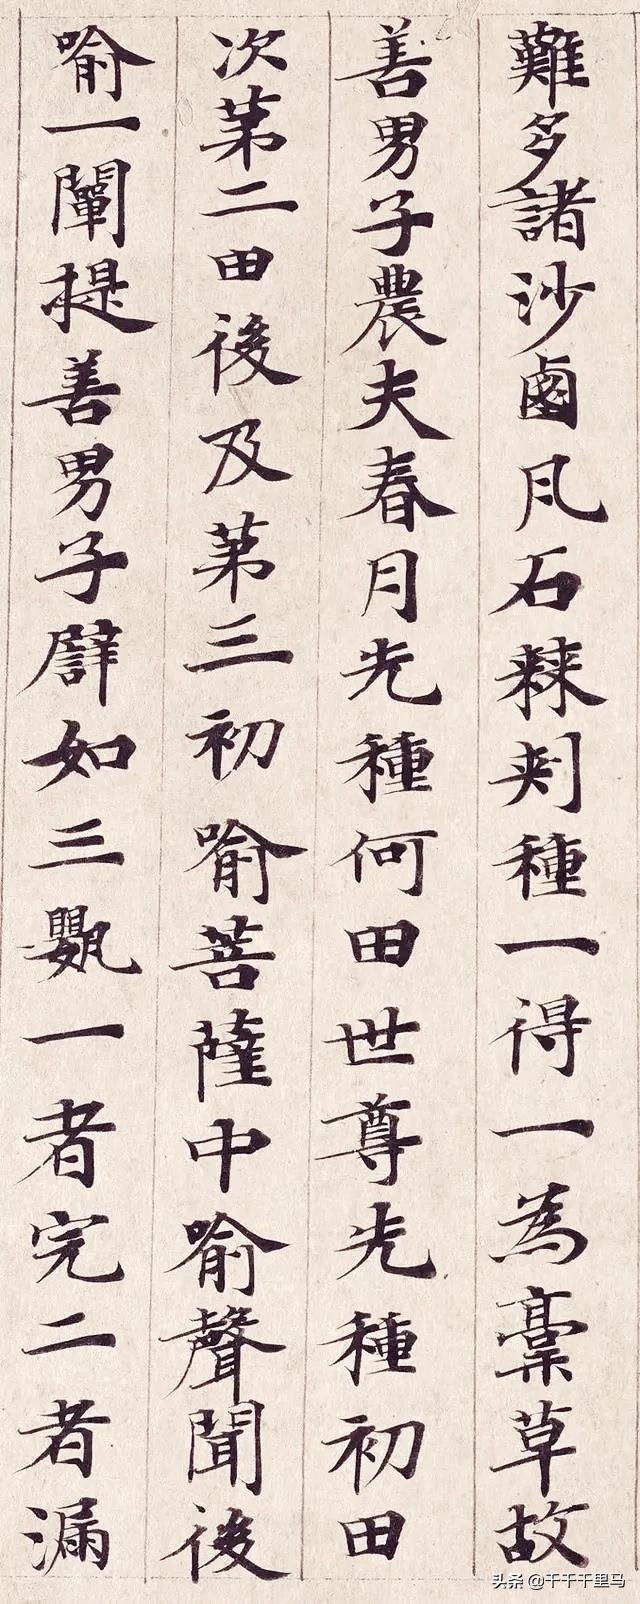 難多諸沙鹵瓦石棘刺種一得一為藁草故
善男子農夫春月先種何田世尊先種初田
次第二田後及第三初喻菩薩中喻聲聞後
喻一闡提善男子譬如三甖一者完二者漏
头条 @千千千里马